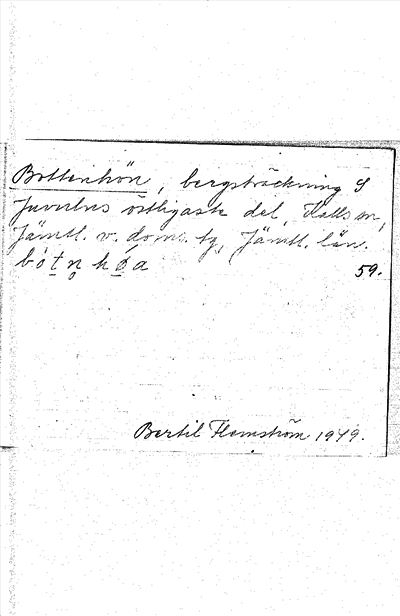 Bottenhön, bergsträckning S
Juvulns östligaste del, Kalls sn,
Jämtl. v. doms. tg, Jämtl. län.
bótn hǿa
59.
Bertil Flemström 1949.